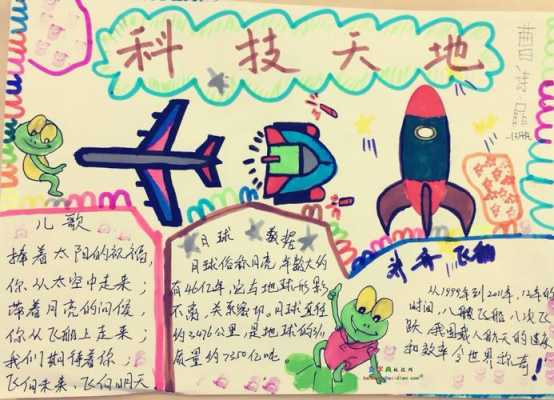 科技天地
儿歌
捧着太阳的祝福,
你从太空中走来;
带着月亮的问候,
你从飞船上走来;
我们期待着你;
飞向未来、飞向明天
月球 数据
月球俗称月亮,年龄大约
有46亿年,它与地球形影
不离,关系密切,月球直径
约3476公里,是地球的3/11
质量约7350亿吨
飞船
从1999年到2011年,12年的
时间,八艘飞船,八次飞
跃,我国载人航天的速度
和效率令世界惊奇!